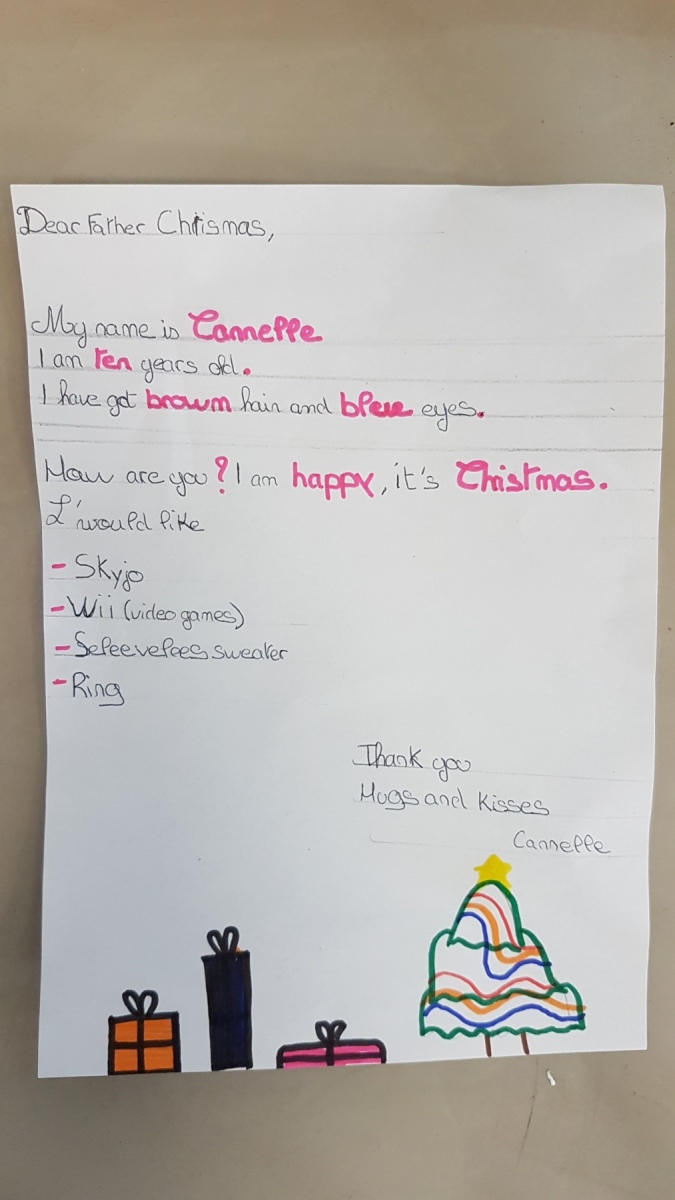 Dear Father Chrismas,
My name is Cannelle
I am ten years old.
I have got brown hair and bleue eyes.
How are you? I am happy, it's Christmas.
I'would like
- Skyjo
- Wii (video games)
- Seleevelees sweater
- Ring
Thank you
Hugs and Kisses
Cannelle